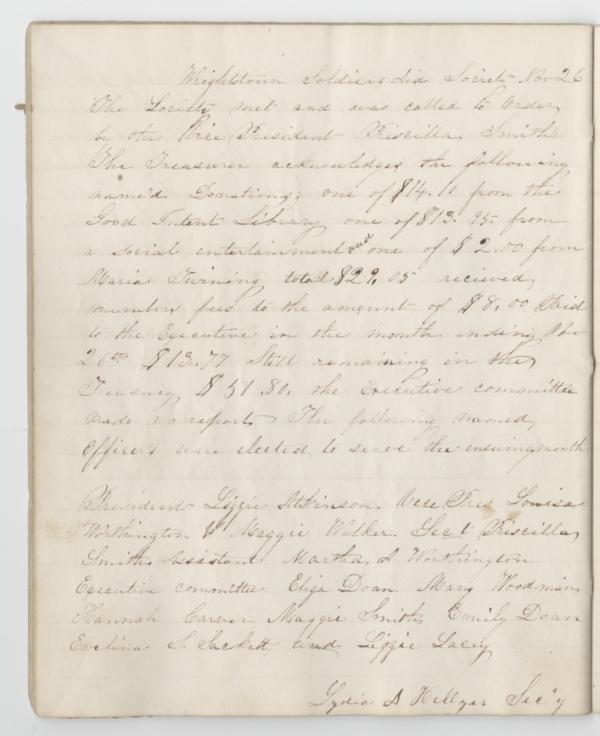 Wrightstown Soldiers Aid Society Nov 26
The Society met and was called to order
by the Vice President Priscilla Smith
The Treasurer acknowledges the following
named Donations; one of $14.10 from the
Good Intent Library one of $13.95 from
a social entertainment and one of $2.00 from
Maria Twining total $29.05 recieved
members fees to the amount of $8.00 Paid
to the Executive in the month ending Nov
26th $13.77 Still remaining in the
Treasury $51.80. the Executive committee
made no report The following named
officers were elected to serve the ensuing month
President Lizzie Atkinson, Vice Pres Louisa
Worthington & Maggie Walker Sect Priscilla
Smith, Assistant Martha S Worthington
Executive committee Eliza Doan Mary Woodman,
Hannah Carver Maggie Smith, Emily Doan
Evelina S. Sackett and Lizzie Lacey
Lydia A Hellyer Sec'y